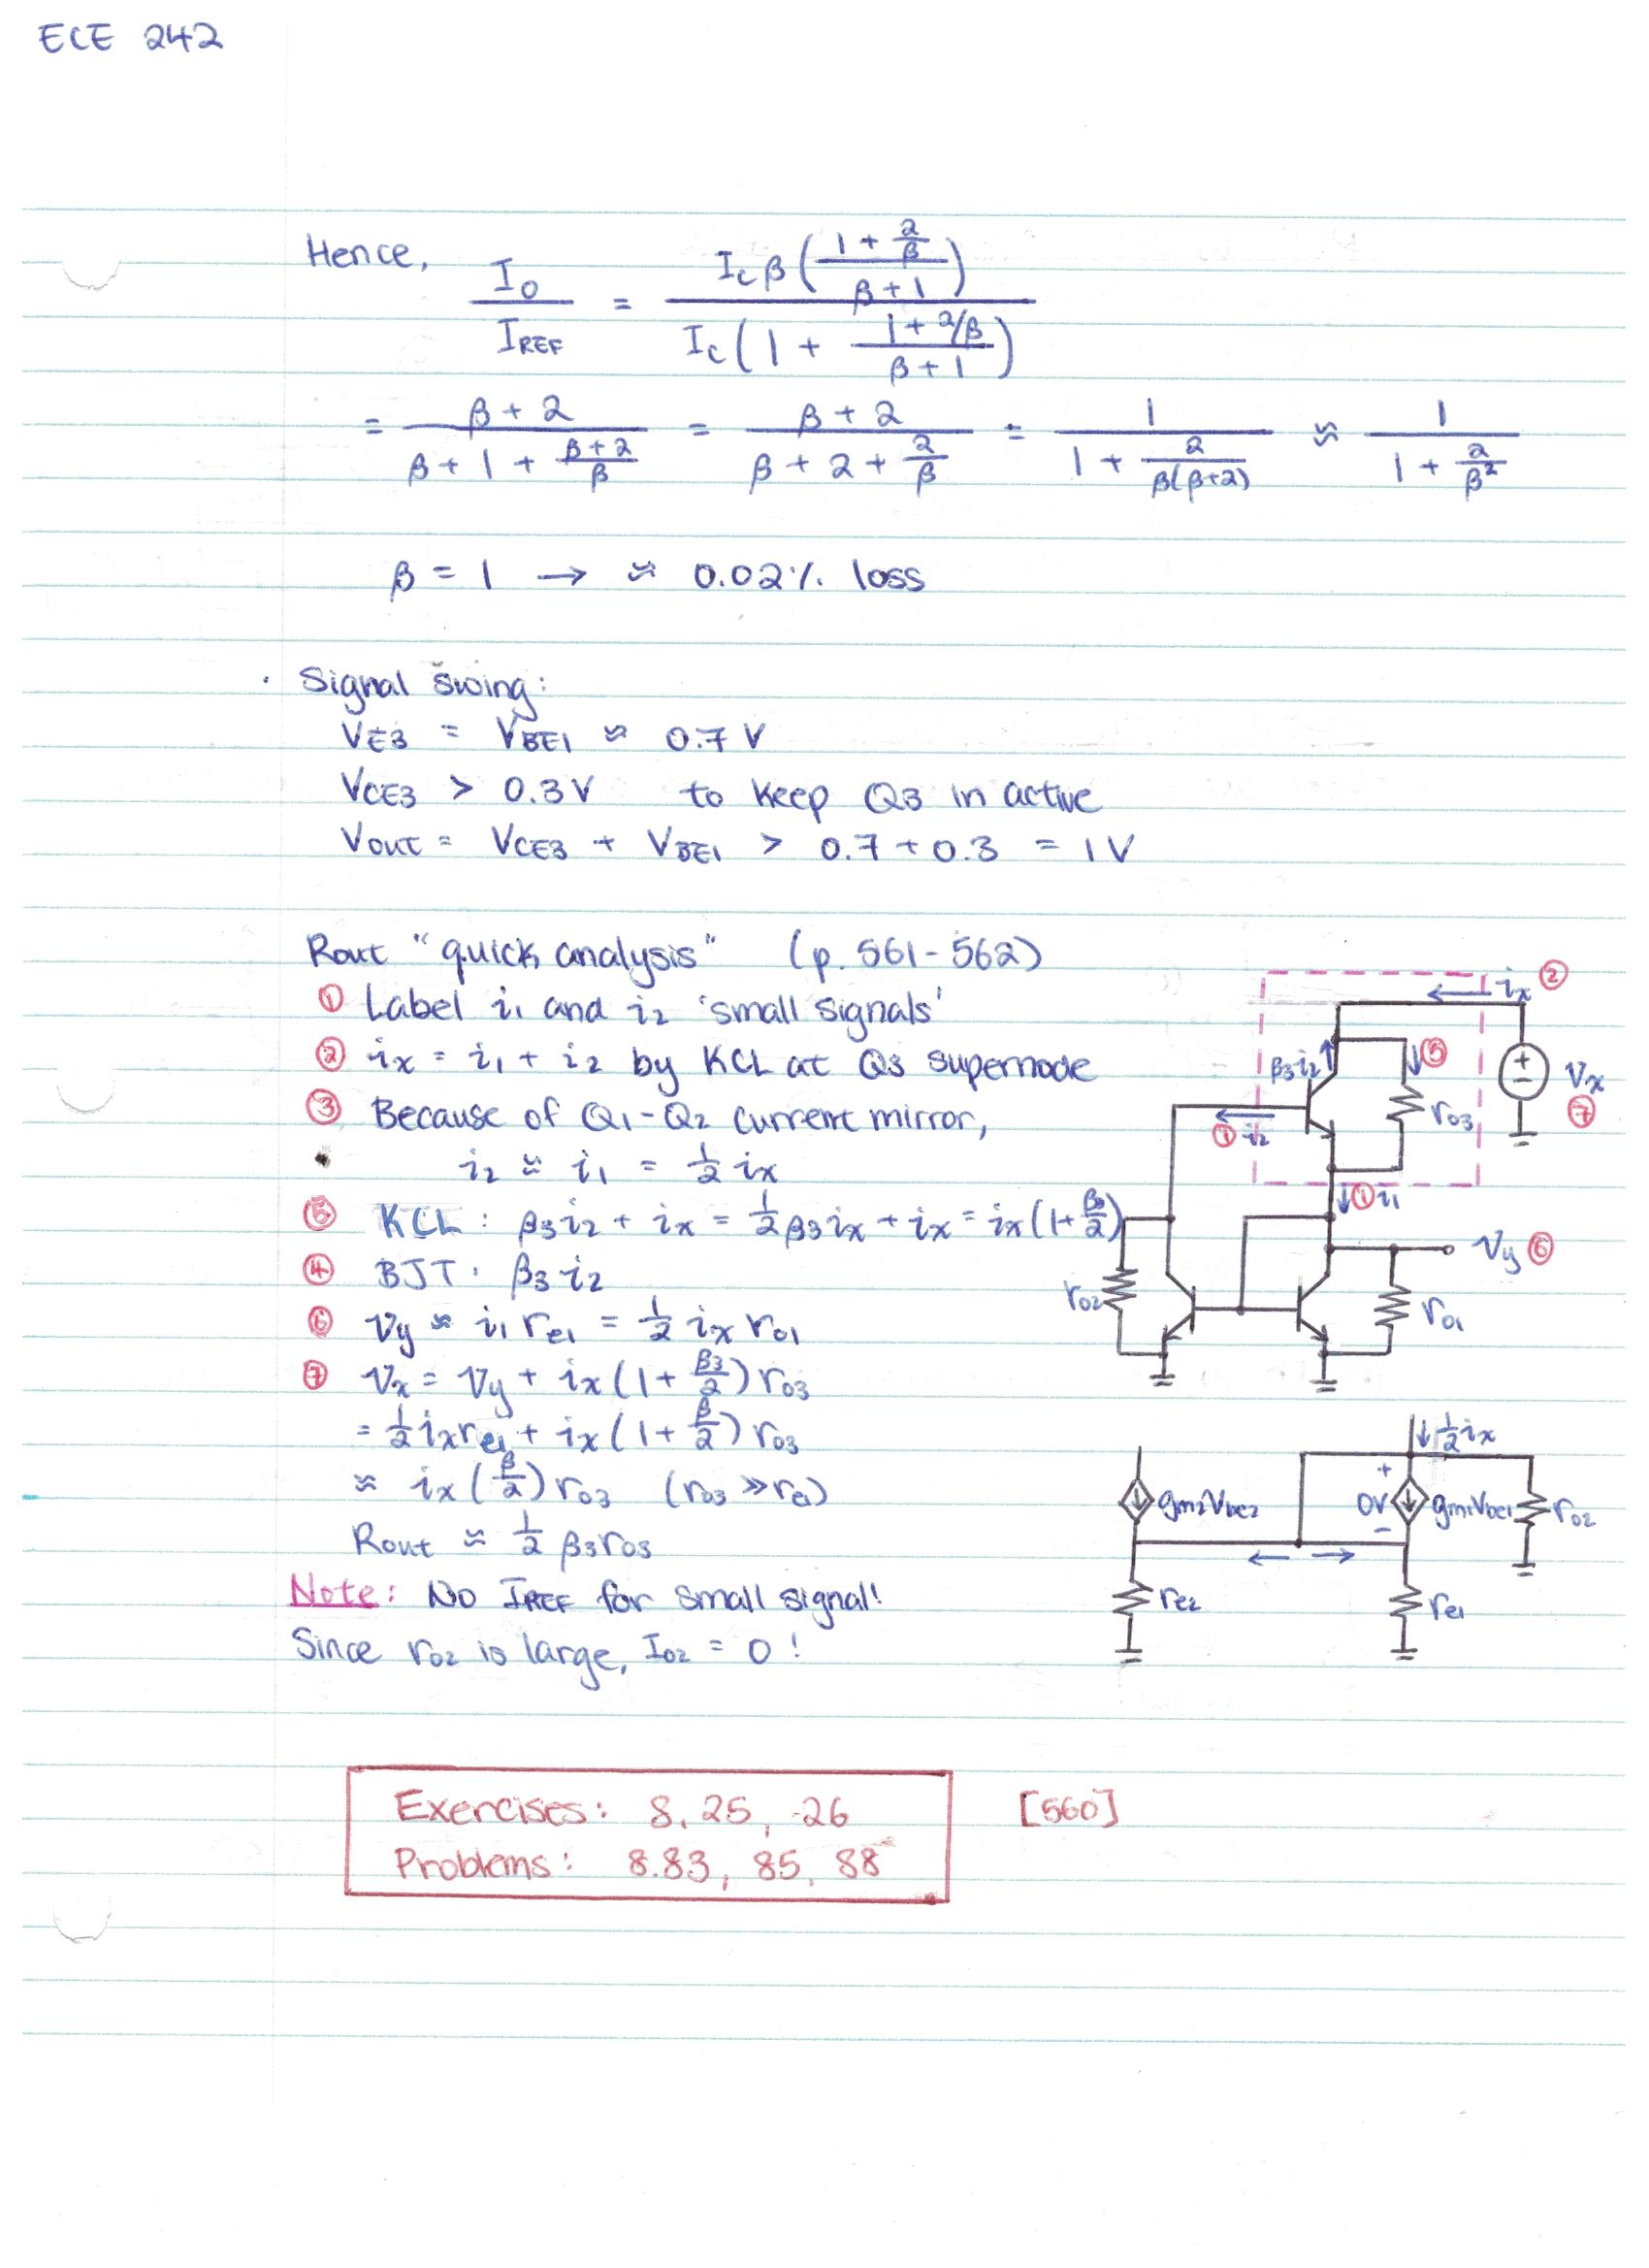 ECE 242
Hence, I_O / I_REF = I_C β ( (1 + 2/β) / (β + 1) ) / I_C ( 1 + (1 + 2/β) / (β + 1) )
= (β + 2) / (β + 1 + (β+2)/β) = (β + 2) / (β + 2 + 2/β) = 1 / (1 + 2/(β(β+2))) ≈ 1 / (1 + 2/β²)
β = 1 → ≈ 0.02% loss
· Signal swing:
V_E3 = V_BE1 ≈ 0.7 V
V_CE3 > 0.3V to keep Q3 in active
Vout = V_CE3 + V_BE1 > 0.7 + 0.3 = 1V
Rout "quick analysis" (p. 561-562)
① Label i₁ and i₂ 'small signals'
② ix = i₁ + i₂ by KCL at Q3 supernode
③ Because of Q1-Q2 current mirror,
i₂ ≈ i₁ = ½ ix
⑤ KCL: β₃i₂ + ix = ½β₃ix + ix = ix(1+ β₃/2)
④ BJT: β₃i₂
⑥ Vy ≈ i₁ re₁ = ½ ix ro₁
⑦ Vx = Vy + ix(1 + β₃/2) ro₃
= ½ ix re₁ + ix(1 + β/2) ro₃
≈ ix(β/2) ro₃ (ro₃ >> re₁)
Rout ≈ ½ β₃ro₃
Note: No I_REF for small signal!
Since ro₂ is large, I_O2 = 0 !
ix ②
β₃i₂
⑤
ro₃
Vx
⑦
① i₂
① i₁
Vy ⑥
ro₂
ro₁
½ix
gm₂Vbe₂
+
0V
−
gm₁Vbe₁
ro₂
re₂
re₁
Exercises: 8.25, -26 [560]
Problems: 8.83, 85, 88